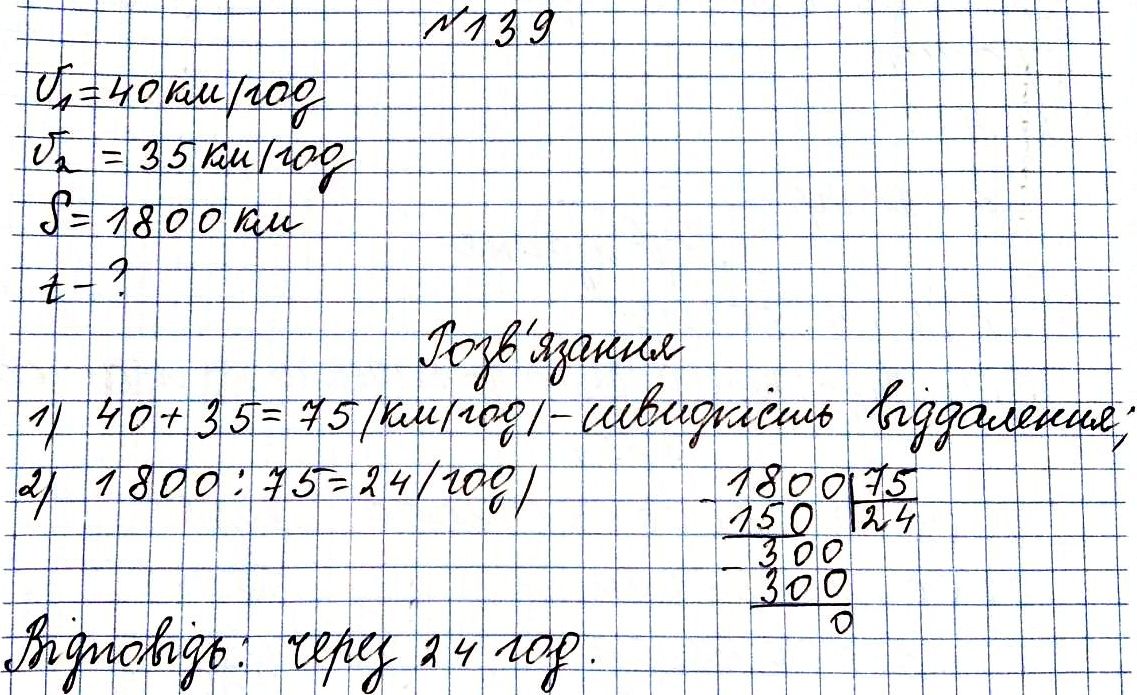 №139
V₁ = 40 км/год
V₂ = 35 км/год
S = 1800 км
t - ?
Розв'язання
1) 40 + 35 = 75 (км/год) - швидкість віддалення;
2) 1800 : 75 = 24 (год)
- 1800 | 75
150 | 24
- 300
300
0
Відповідь: через 24 год.